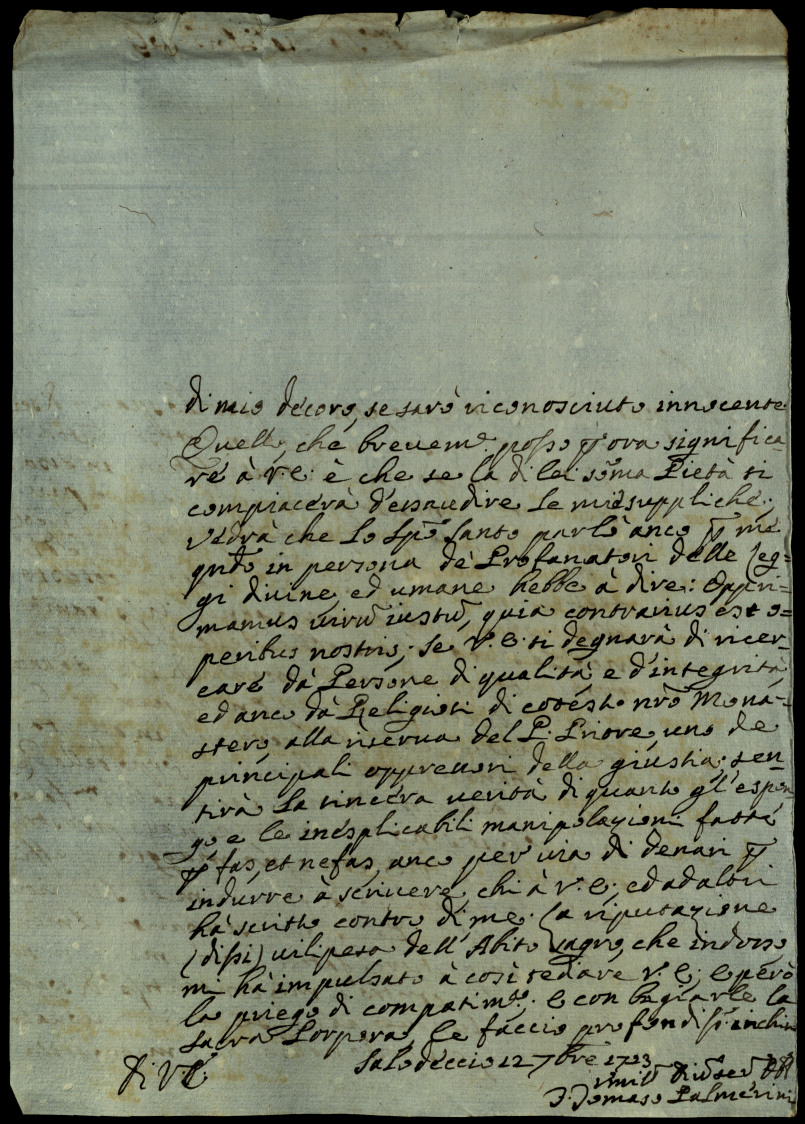 di mio decoro, se sarò riconosciuto innocente
Quello, che brevem.e posso p ora significa-
re à V.E. è che se la di lei som̃a Pietà si
compiacerà d'essaudire le mie suppliche,
vedrà che lo Spõ Santo parlò anco p me
qndo in persona de Profanatori delle Leg-
gi divine ed umane hebbe à dire: Oppri-
mamus virũ iustũ, quia contrarius est o-
peribus nostris; se V.E. si degnarà di ricer-
care da Persone di qualità e d'integrità
ed anco da Religiosi di codesto nrõ Mona-
stero, alla riserva del P. Priore, uno de
principali oppressori della giustia; sen-
tirà la sincera verità di quanto gl'espon-
go e le inesplicabili manipolazioni fatte
p fas, et nefas, anco per via di denari p
indurre à scrivere chi à V.E. ed ad altri
hà scritto contro di me. La riputazione
(dissi) vilipesa dell'Abito sagro, che indosso
m'hà impulsato à così tediare V.E. e però
la priego di compatim.to; e con bagiarle la
sacra Porpora, le faccio profondiss. inchin
Salodeccio 12 7bre 1723
Di V.E.
F. Tomaso Palmerini